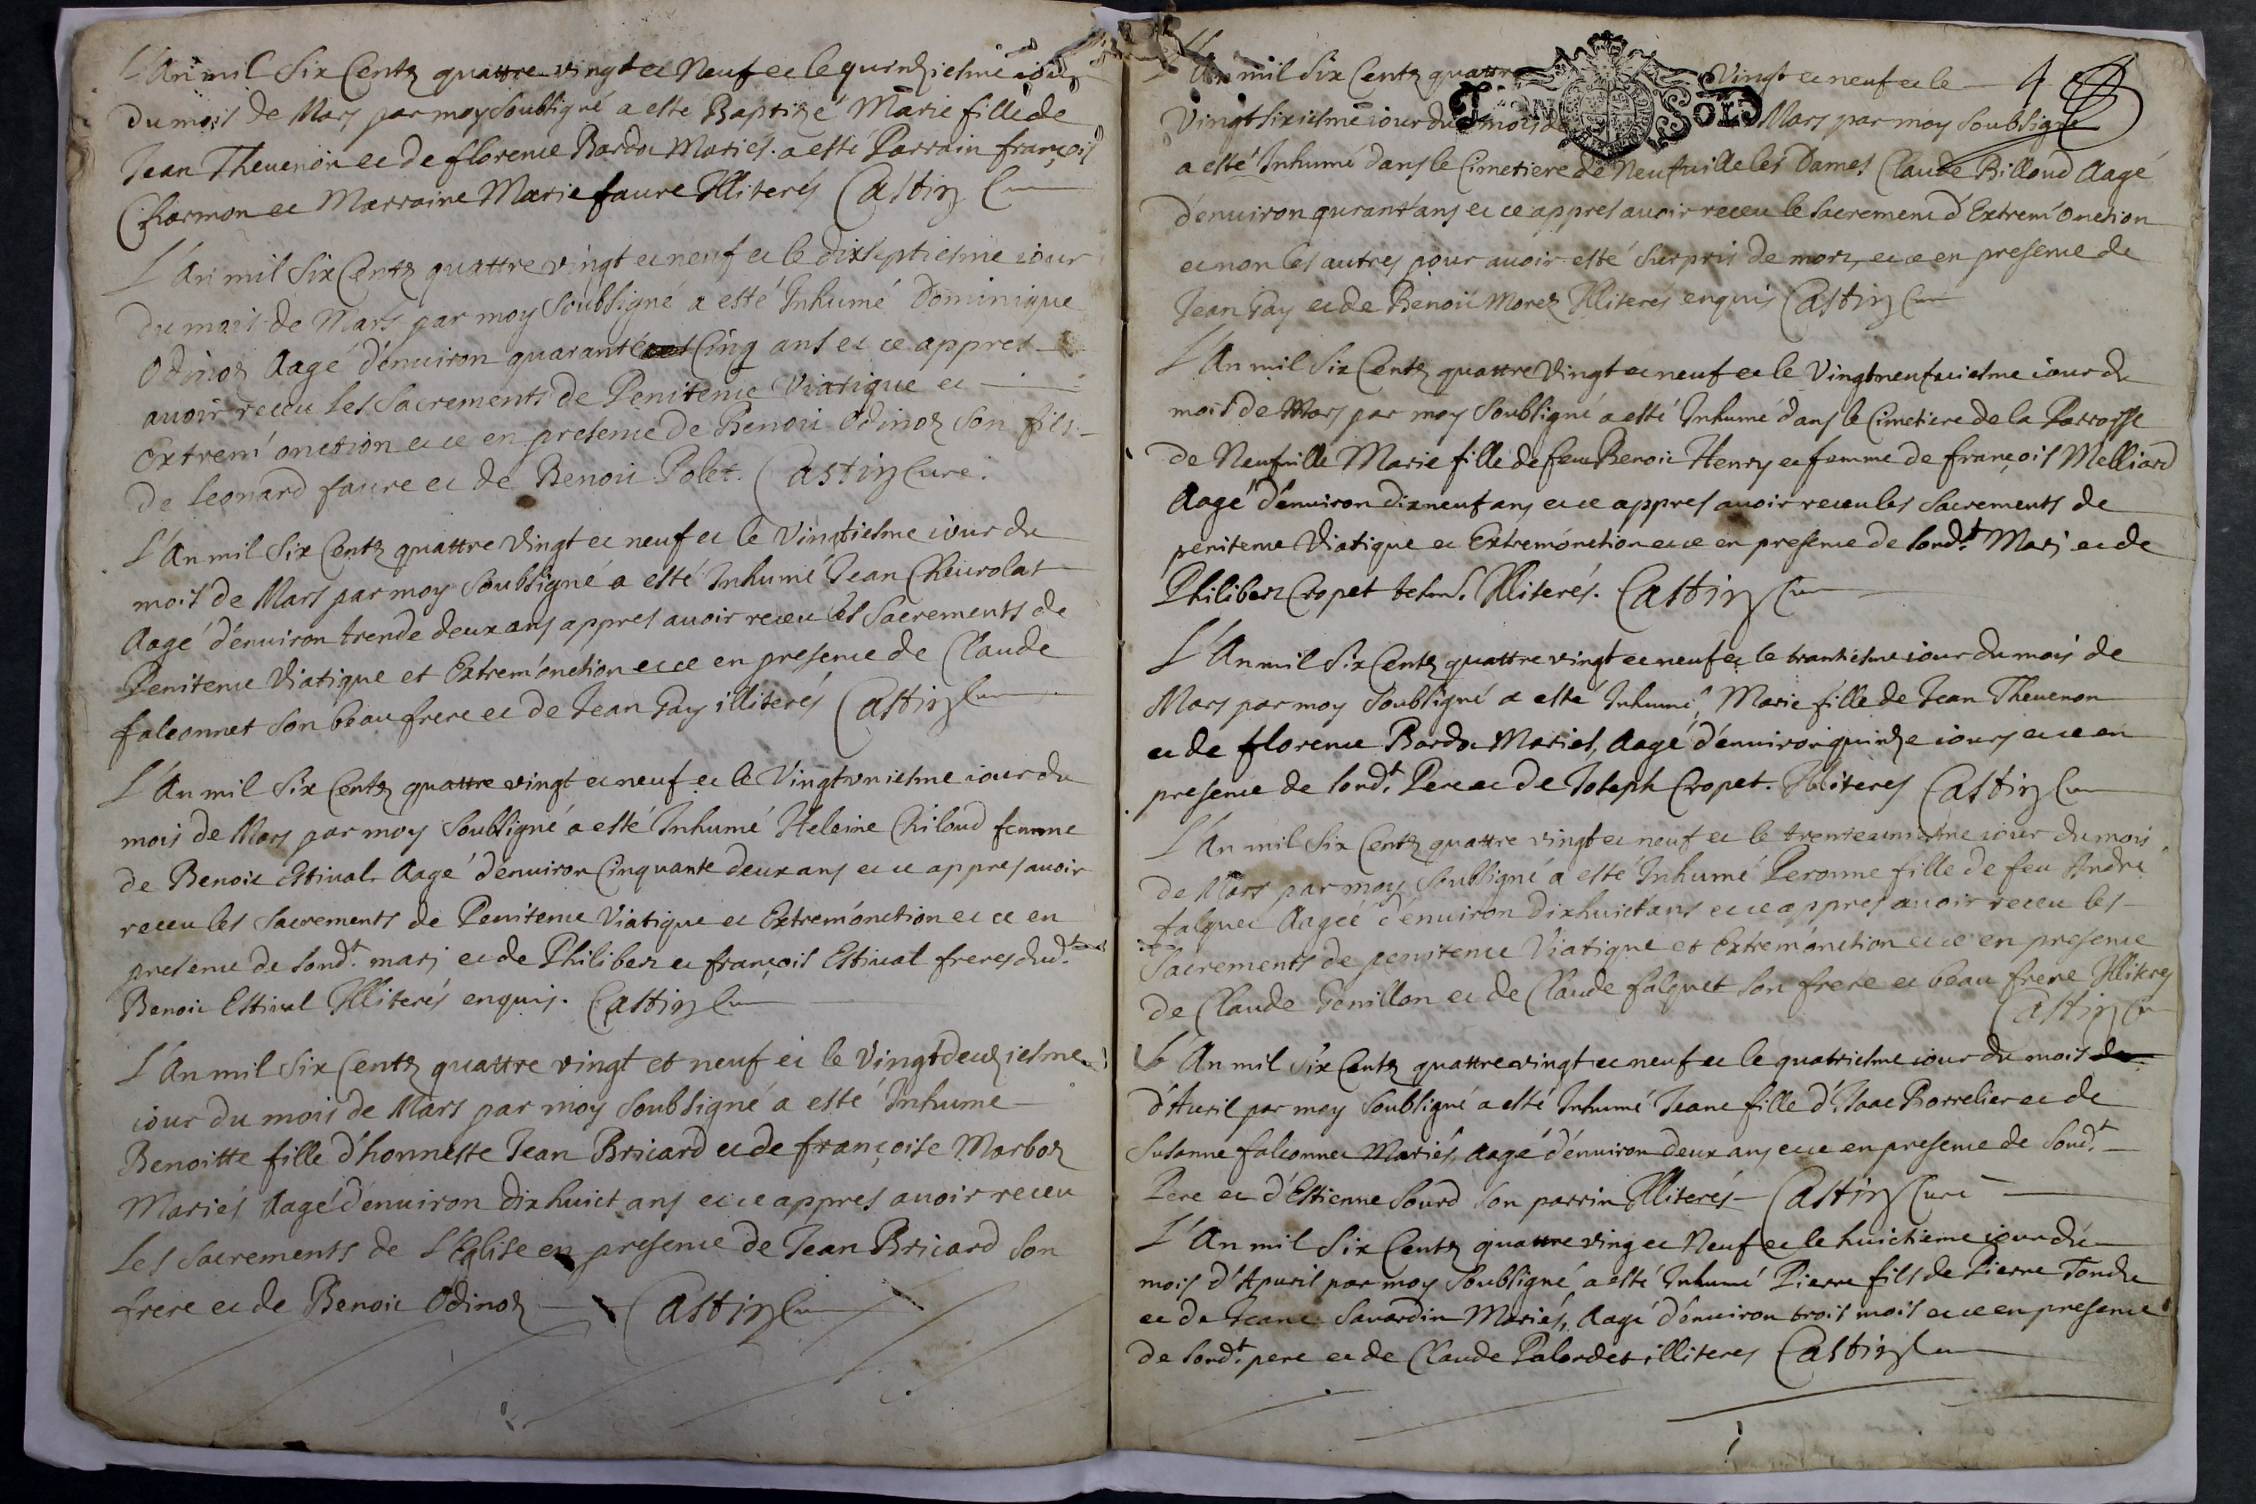 L'An mil Six Centz quattre vingt et Neuf et le quinziesme iour
du mois de Mars par moy Soubsigné a esté Baptizé Marie fille de
Jean Theuenon et de florence Bardot Mariés. a esté Parrain françois
Charmon et Marraine Marie faure Illiterés Castin Curé
L'An mil Six Centz quattre vingt et neuf et le dixseptiesme iour
du mois de Mars par moy Soubsigné a esté Inhumé Dominique
Odinoz Aagé d'enuiron quarante Cinq ans et ce appres
auoir receu les Sacrements de Penitence Viatique et
Extrem'onction et ce en presence de Benoit Odinoz son fils
de Leonard faure et de Benoit Polet. Castin Curé.
L'An mil Six Centz quattre vingt et neuf et le Vingtiesme iour du
mois de Mars par moy Soubsigné a esté Inhumé Jean Cheurolat
Aagé d'enuiron trende deux ans appres auoir receu les Sacrements de
Penitence Viatique et Extrem'onction et ce en presence de Claude
falconnet son beau frere et de Jean Gay illiterés Castin Curé
L'An mil Six Centz quattre vingt et neuf et le Vingtvniesme iour du
mois de Mars par moy Soubsigné a esté Inhumé Helaine Chiloud femme
de Benoit Estiual Aagé d'enuiron Cinquante deux ans et ce appres auoir
receu les Sacrements de Penitence Viatique et Extrem'onction et ce en
presence de sondt. marj et de Philibert et françois Estiual freres dudt.
Benoit Estiual Illiterés enquis. Castin Curé
L'An mil Six Centz quattre vingt et neuf et le Vingtdeuziesme
iour du mois de Mars par moy Soubsigné a esté Inhumé
Benoitte fille d'honneste Jean Bricard et de françoise Marboz
Mariés Aagé d'enuiron dixhuict ans et ce appres auoir receu
les Sacrements de L'Eglise en presence de Jean Bricard son
frere et de Benoit Odinoz Castin Curé
L'An mil Six Centz quattre Vingt et neuf et le 4
Vingtsixiesme iour du mois de Mars par moy Soubsigné
a esté Inhumé dans le Cimetiere de Neufuille les Dames Claude Billoud Aagé
d'enuiron qurant'ans et ce appres auoir receu le Sacrement d'Extrem'onction
et non les autres pour auoir esté Surpris de mort, et ce en presence de
Jean Gay et de Benoit Morez Illiterés enquis Castin Curé
L'An mil Six Centz quattre Vingt et neuf et le Vingtneufuiesme iour du
mois de Mars par moy Soubsigné a esté Inhumé dans le Cimetiere de la Parroisse
de Neufuille Marie fille de feu Benoit Henry et femme de françois Melliard
Aagé d'enuiron dixneuf ans et ce appres auoir receu les Sacrements de
penitence Viatique et Extrem'onction et ce en presence de sondt. Marj et de
Philibert Cropet Illiterés. Castin Curé
L'An mil Six Centz quattre vingt et neuf et le trantiesme iour du mois de
Mars par moy Soubsigné a esté Inhumé, Marie fille de Jean Theuenon
et de florence Bardot Mariés, Aagé d'enuiron quinze iours et ce en
presence de sondt. Pere et de Joseph Cropet. Illiteres Castin Curé
L'An mil Six Centz quattre vingt et neuf et le trenteuniesme iour du mois
de Mars par moy Soubsigné a esté Inhumé Peronne fille de feu André
falquet Aagée d'enuiron dixhuict ans et ce appres auoir receu les
Sacrements de penitence Viatique et Extrem'onction et ce en presence
de Claude Genillon et de Claude falquet son frere et beau frere Illiteres
Castin Curé
L'An mil Six Centz quattre vingt et neuf et le quatriesme iour du mois
d'Auril par moy Soubsigné a esté Inhumé Jeane fille d'Isaac Borrelier et de
Susanne falconnet Mariés, Aagé d'enuiron deux ans et ce en presence de Sondt.
Pere et d'Estienne Sourd son parrin Illiterés Castin Curé
L'An mil Six Centz quattre ving et Neuf et le huictieme iour du
mois d'Apuril par moy Soubsigné a esté Inhumé Pierre fils de Pierre Tondu
et de Jeane Sauardin Mariés, Aagé d'enuiron trois mois et ce en presence
de sondt. pere et de Claude Palordet illiteres Castin Curé